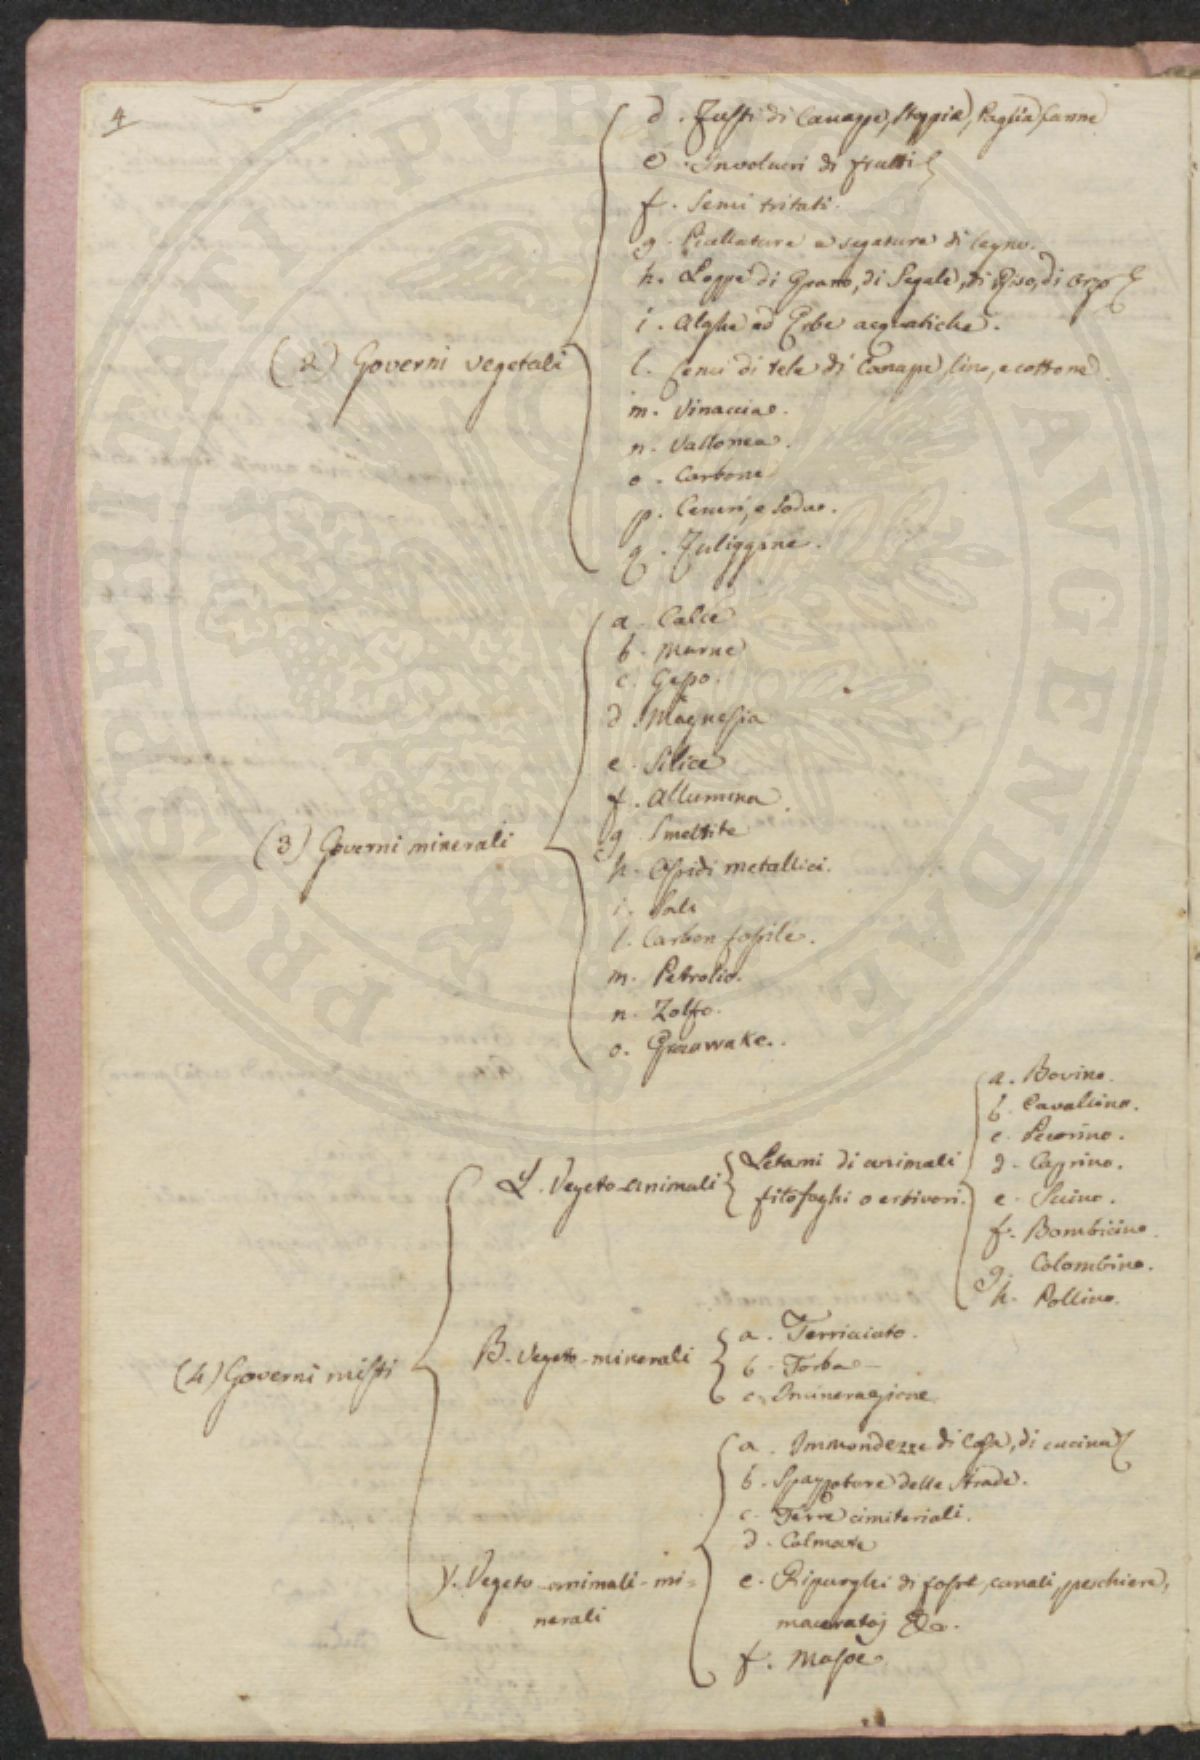 4
d. Fusti di Canappe, stoppie, Paglia, Canne
e. Involucri di frutti
f. Semi tritati.
g. Piallature e segature di legno.
h. Loppe di Grano, di Segale, di Riso, di Orzo
i. Alghe ed Erbe acquatiche.
(2) Governi vegetali
l. Cenci di tele di Canape, lino, e cottone.
m. Vinaccia.
n. Vallonea.
o. Carbone
p. Ceneri, e Sodue.
q. Fuliggine.
a. Calce
b. Marne
c. Gesso.
d. Magnesia
e. Silice
f. Allumina.
g. Smeltite
(3) Governi minerali
h. Ossidi metallici.
i. Sali
l. Carbon fossile.
m. Petrolio.
n. Zolfo.
o. Grauwake.
a. Bovino.
b. Cavallino.
c. Pecorino.
d. Caprino.
e. Suino.
f. Bombicino.
g. Colombino.
h. Pollino.
Letami di animali
fitofaghi o erbivori.
Vegeto-animali
B. Vegeto-minerali
a. Terriciato.
b. Torba
c. Incinerazione
(4) Governi misti
a. Immondezze di Casa, di cucina
b. Spazzature delle Strade.
c. Terre cimiteriali.
d. Colmate
γ. Vegeto-animali-mi=
nerali
e. Ripurghi di fosse, canali, peschiere,
maceratoj &a.
f. Masse.
PROSPERITATI PUBLICAE AVGENDAE